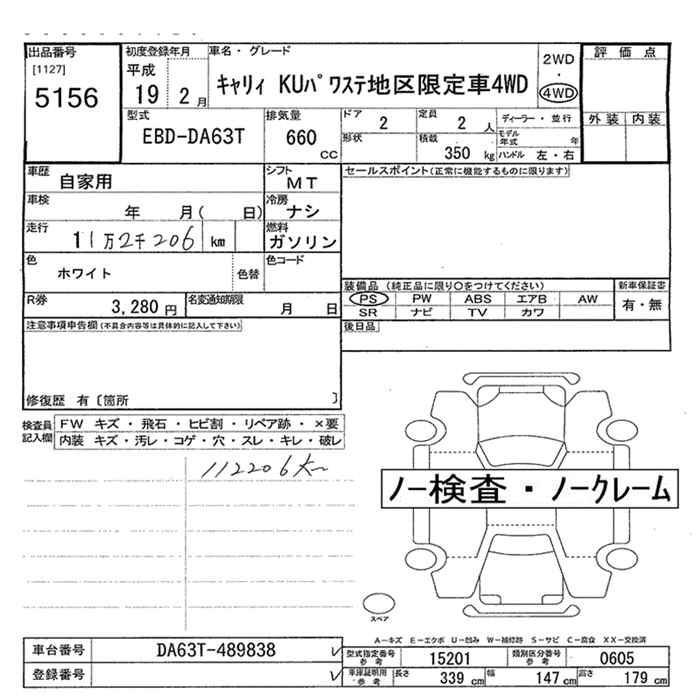 出品番号
[1127]
5156
初度登録年月
平成
19 2 月
車名・グレード
キャリィ KUパワステ地区限定車4WD
2WD
4WD
評価点
外装 内装
型式
EBD-DA63T
排気量
660 cc
ドア
2
定員
2 人
ディーラー・並行
形状
積載
350 kg
モデル年式 年
ハンドル 左・右
車歴
自家用
シフト
MT
車検
年 月( 日)
冷房
ナシ
走行
11万2千206 km
燃料
ガソリン
色
ホワイト
色替
色コード
R券
3,280 円
名変通知期限
月 日
セールスポイント(正常に機能するものに限ります)
装備品 (純正品に限り○をつけてください)
新車保証書
PS PW ABS エアB AW
有・無
SR ナビ TV カワ
後日品
注意事項申告欄(不具合内容等は具体的に記入して下さい)
修復歴 有〔箇所 〕
検査員記入欄
FW キズ・飛石・ヒビ割・リペア跡・×要
内装 キズ・汚レ・コゲ・穴・スレ・キレ・破レ
112206
ノー検査・ノークレーム
スペア
A-キズ E-エクボ U-凹み W-補修跡 S-サビ C-腐食 XX-交換済
車台番号
DA63T-489838
登録番号
型式指定番号参考
15201
類別区分番号参考
0605
車庫証明用参考
長さ
339 cm
幅
147 cm
高さ
179 cm